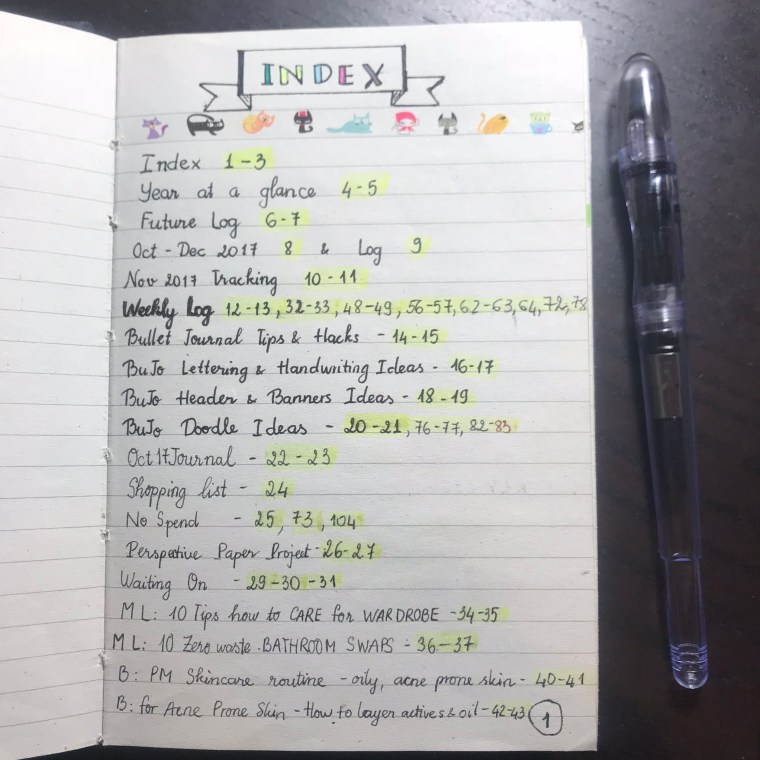 INDEX
Index 1-3
Year at a glance 4-5
Future Log 6-7
Oct-Dec 2017 8 & Log 9
Nov 2017 Tracking 10-11
Weekly Log 12-13, 32-33, 48-49, 56-57, 62-63, 64, 72, 78
Bullet Journal Tips & Hacks - 14-15
BuJo Lettering & Handwriting Ideas - 16-17
BuJo Header & Banners Ideas - 18-19
BuJo Doodle Ideas - 20-21, 76-77, 82-83
Oct 17 Journal - 22-23
Shopping list - 24
No Spend - 25, 73, 104
Perspective Paper Project - 26-27
Waiting On - 29-30-31
ML: 10 Tips how to CARE for WARDROBE - 34-35
ML: 10 Zero waste BATHROOM SWAPS - 36-37
B: PM Skincare routine - oily, acne prone skin - 40-41
B: for Acne Prone Skin - How to layer actives & oil - 42-43
1